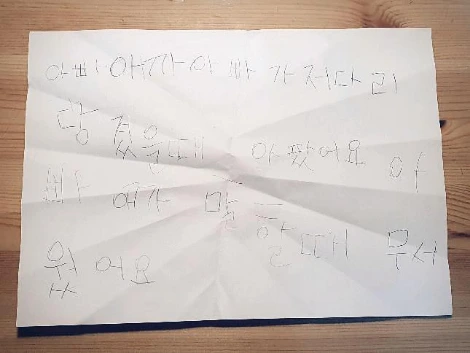 아빠 아까 아빠 가 저 다 리
당 겼을때 아팠어요 아
빠 아까 말 할때 무서
웠어요